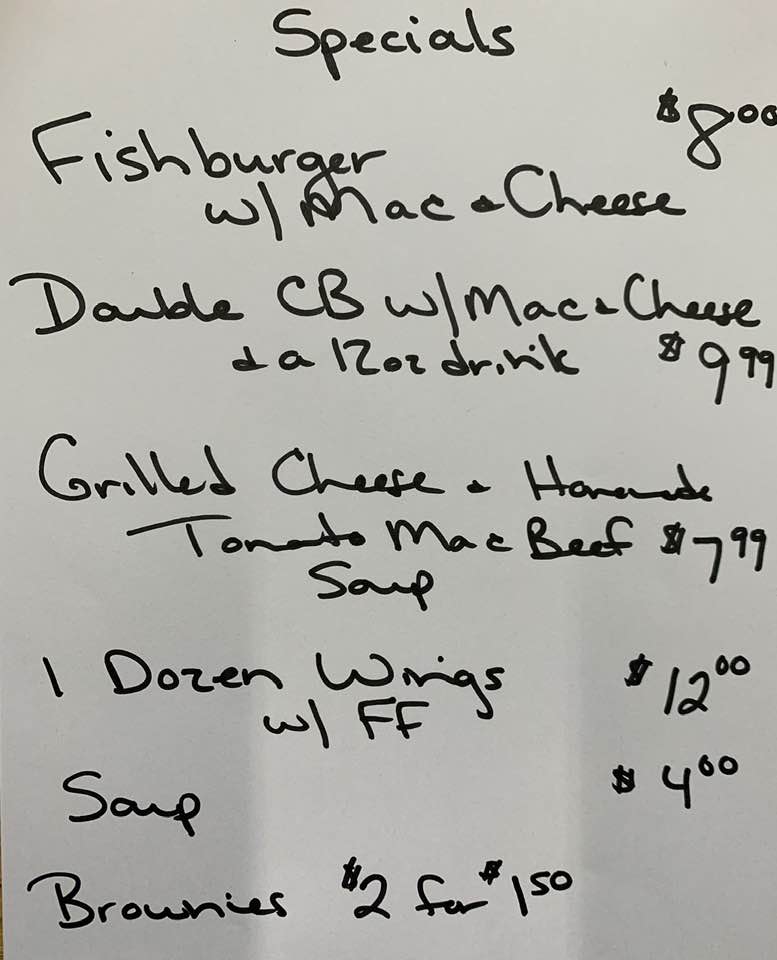 Specials
Fishburger $8.00
w/ Mac & Cheese
Double CB w/ Mac & Cheese
& a 12oz drink $9.99
Grilled Cheese & Homemade
Tomato Mac Beef $7.99
Soup
1 Dozen Wings $12.00
w/ FF
Soup $4.00
Brownies $2 for $1.50